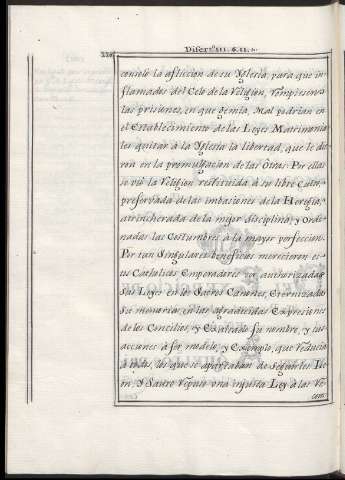 220
Disert.n III. §. II.
consolo la afliccion de su Yglesia, para que in-
flamados del Celo de la Religion, rompiesen
las prisiones, en que gemia, mal podrian en
el Establecimiento de las Leyes Matrimonia
les quitar à la Yglesia la libertad, que le die
ron en la promulgacion de las Otras. Por ellas
se viò la Religion restituida à su libre Culto,
preservada de las imbaciones de la Heregia,
atrincherada de la mejor disciplina, y Orde-
nadas las Costumbres à la mayor perfeccion.
Por tan Singulares beneficios merecieron es-
tos Catholicos Emperadores ver authorizadas
sus Leyes en los Sacros Canones, Eternizadas
su memoria en las agradecidas Expresiones
de los Concilios, y Exaltado su nombre, y sus
acciones à ser modelo, y Exemplo, que Reducia
à todos, los que se apartaban de seguirles. Leo
on, y Sauro Vspulo una injusta Ley à las Ve-
com